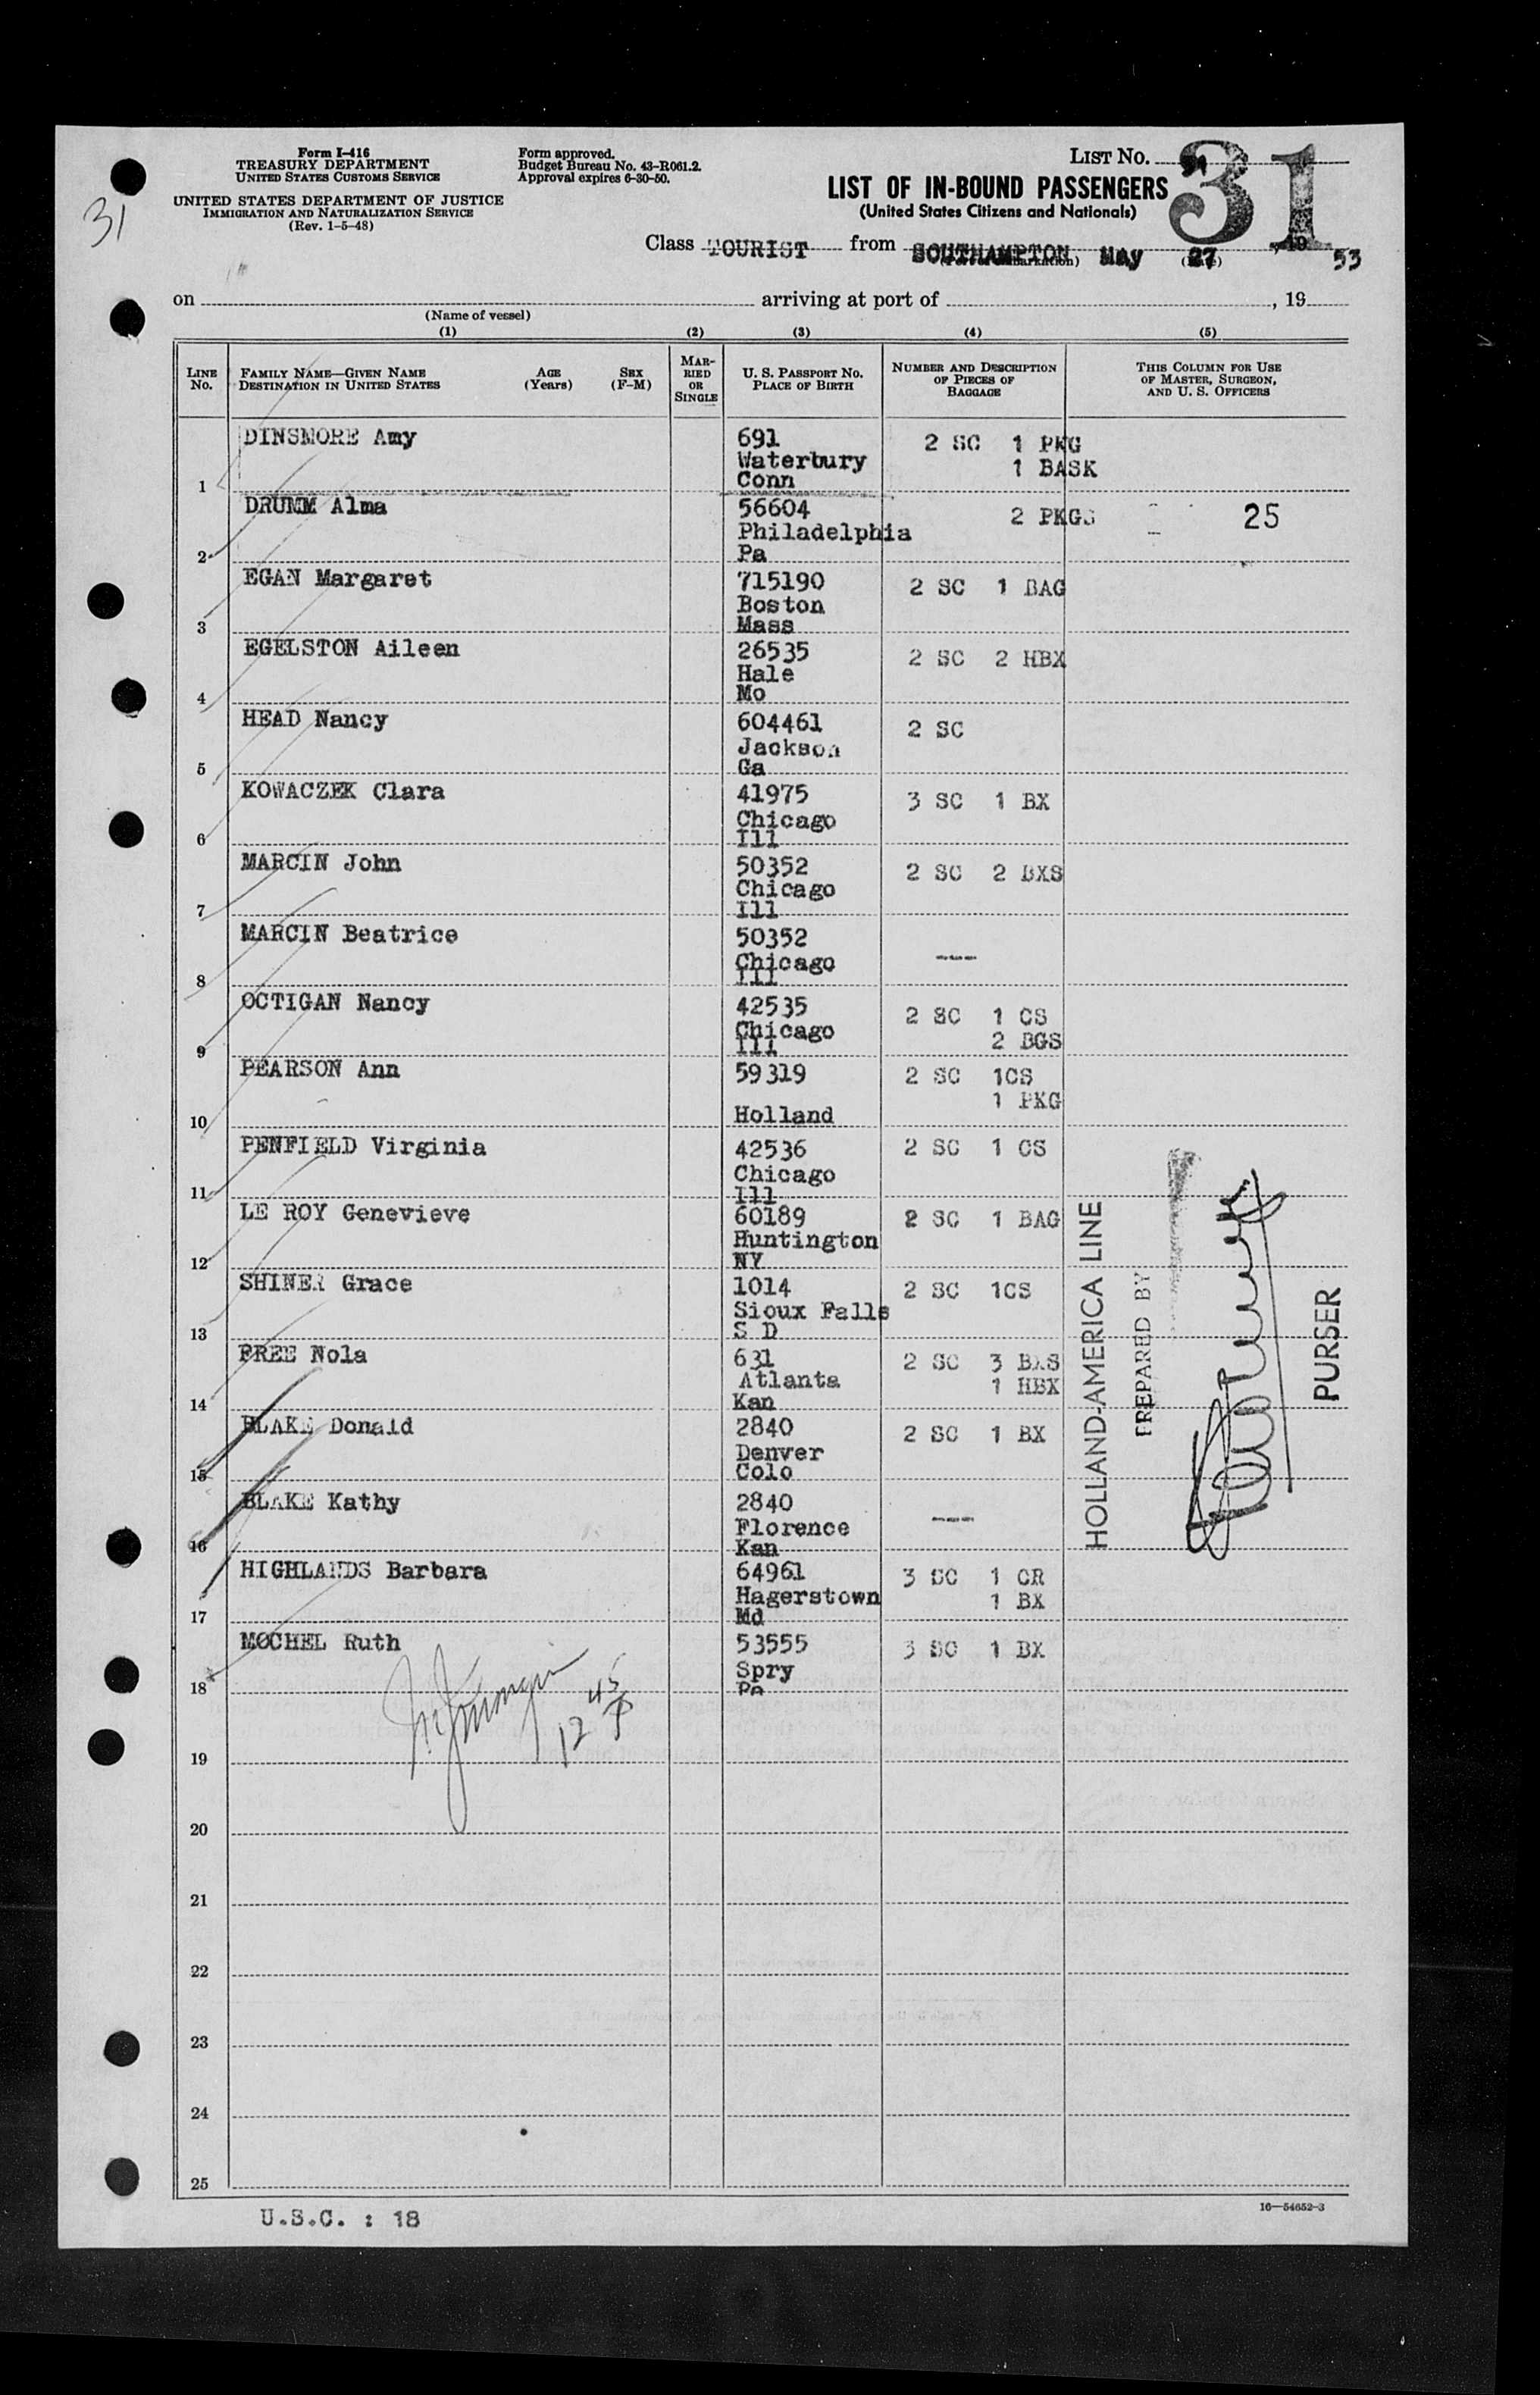 31
Form I-416
TREASURY DEPARTMENT
UNITED STATES CUSTOMS SERVICE
UNITED STATES DEPARTMENT OF JUSTICE
IMMIGRATION AND NATURALIZATION SERVICE
(Rev. 1-5-48)
Form approved.
Budget Bureau No. 43-R061.2.
Approval expires 6-30-50.
LIST No. 31
LIST OF IN-BOUND PASSENGERS
(United States Citizens and Nationals)
Class TOURIST from SOUTHAMPTON May 27, 1953
on arriving at port of , 19
(Name of vessel)
(1) (2) (3) (4) (5)
LINE No. FAMILY NAME—GIVEN NAME DESTINATION IN UNITED STATES AGE (Years) SEX (F-M) MARRIED OR SINGLE U. S. PASSPORT NO. PLACE OF BIRTH NUMBER AND DESCRIPTION OF PIECES OF BAGGAGE THIS COLUMN FOR USE OF MASTER, SURGEON, AND U. S. OFFICERS
DINSMORE Amy 691 2 SC 1 PKG
Waterbury 1 BASK
1 Conn
DRUMM Alma 56604 2 PKGS 25
Philadelphia
2 Pa
EGAN Margaret 715190 2 SC 1 BAG
Boston
3 Mass
EGELSTON Aileen 26535 2 SC 2 HBX
Hale
4 Mo
HEAD Nancy 604461 2 SC
Jackson
5 Ga
KOWACZEK Clara 41975 3 SC 1 BX
Chicago
6 Ill
MARCIN John 50352 2 SC 2 BXS
Chicago
7 Ill
MARCIN Beatrice 50352
Chicago ---
8 Ill
OCTIGAN Nancy 42535 2 SC 1 CS
Chicago 2 BGS
9 Ill
PEARSON Ann 59319 2 SC 1CS
1 PKG
10 Holland
PENFIELD Virginia 42536 2 SC 1 CS
Chicago
11 Ill
LE ROY Genevieve 60189 2 SC 1 BAG
Huntington
12 NY
SHINER Grace 1014 2 SC 1CS
Sioux Falls
13 S D
FREE Nola 631 2 SC 3 BXS
Atlanta 1 HBX
14 Kan
BLAKE Donald 2840 2 SC 1 BX
Denver
15 Colo
BLAKE Kathy 2840
Florence ---
16 Kan
HIGHLANDS Barbara 64961 3 SC 1 CR
Hagerstown 1 BX
17 Md
MOCHEL Ruth 53555 3 SC 1 BX
Spry
18 Pa
12 45 P
19
20
21
22
23
24
25
HOLLAND-AMERICA LINE
PREPARED BY
PURSER
U.S.C. : 18
16—54652-3